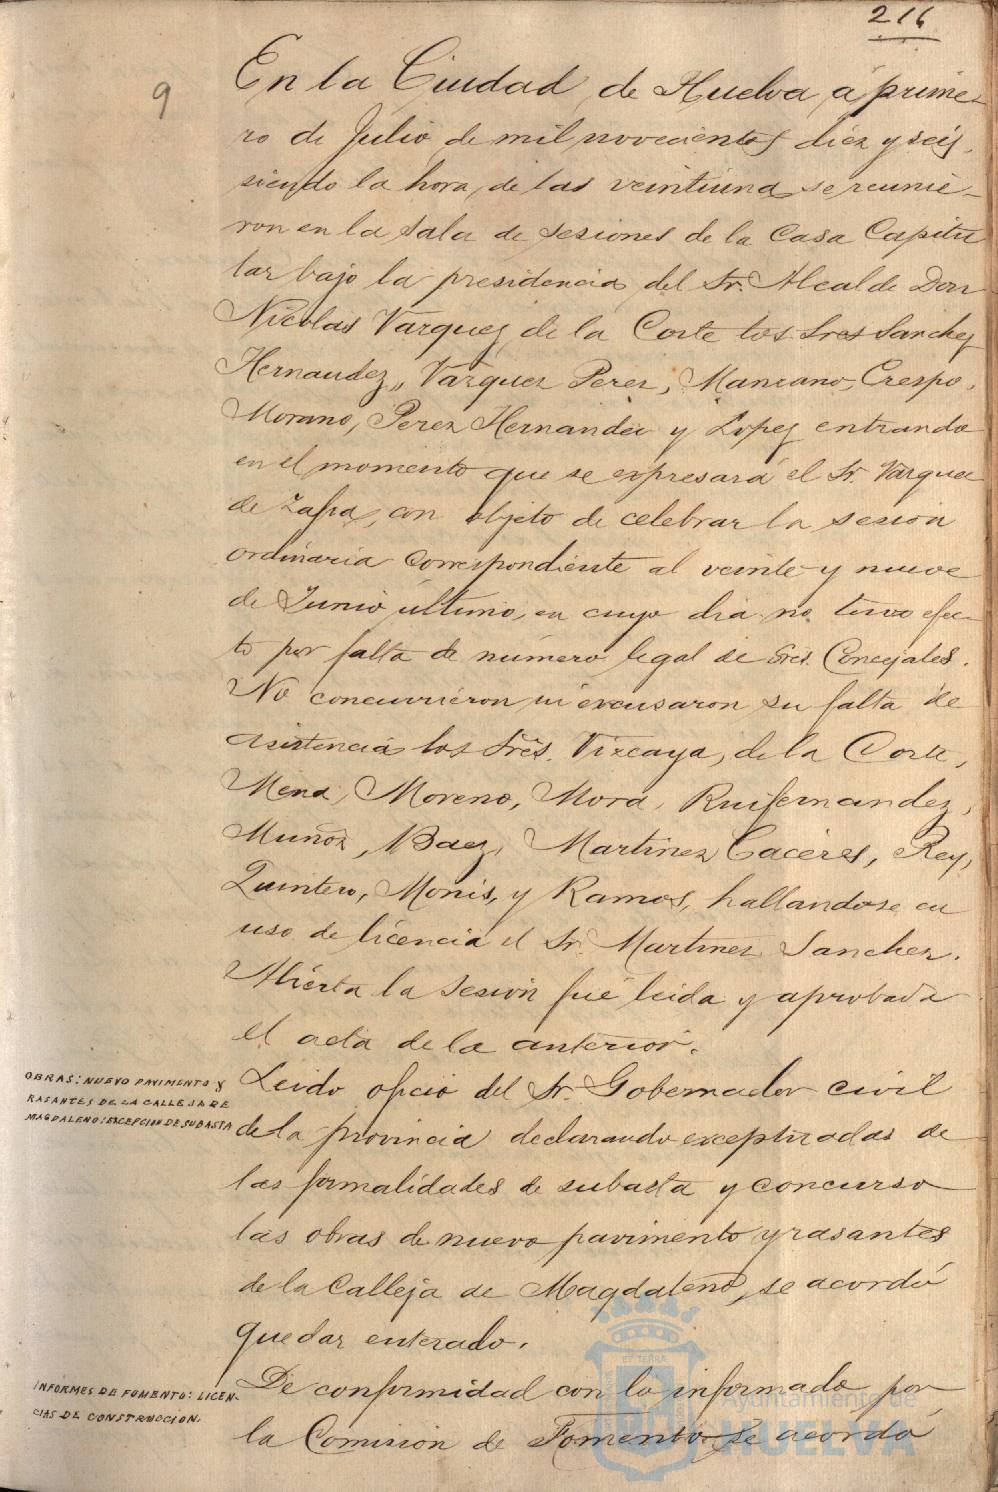 216
9
En la Ciudad de Huelva á prime-
ro de Julio de mil novecientos diez y seis,
siendo la hora de las veintiuna se reunie-
ron en la sala de sesiones de la Casa Capitu
lar bajo la presidencia del Sr. Alcalde Don
Nicolas Vazquez de la Corte los Sres Sanchez
Hernandez, Vazquez Perez, Manzano, Crespo,
Morano, Perez Hernandez y Lopez entrando
en el momento que se espresará el Sr. Vazquez
de Zafra, con objeto de celebrar la sesion
ordinaria correspondiente al veinte y nueve
de Junio ultimo, en cuyo dia no tuvo efec-
to por falta de número legal de Sres. Concejales.
No concurrieron ni excusaron su falta de
asistencia los Sres. Vizcaya, de la Corte,
Mena, Moreno, Mora, Ruifernandez,
Muñoz, Baez, Martinez Caceres, Rey,
Quintero, Monis, y Ramos, hallandose en
uso de licencia el Sr. Martinez Sanchez.
Abierta la sesion fué leida y aprobada
el acta de la anterior.
OBRAS: NUEVO PAVIMENTO Y
RASANTES DE LA CALLEJA DE
MAGDALENO: EXCEPCION DE SUBASTA
Leido oficio del Sr. Gobernador civil
de la provincia declarando exceptuadas de
las formalidades de subasta y concurso
las obras de nuevo pavimento y rasantes
de la Calleja de Magdaleno, se acordó
quedar enterado.
INFORMES DE FOMENTO: LICEN-
CIAS DE CONSTRUCCION.
De conformidad con lo informado por
la Comision de Fomento se acordó
Ayuntamiento de
HUELVA